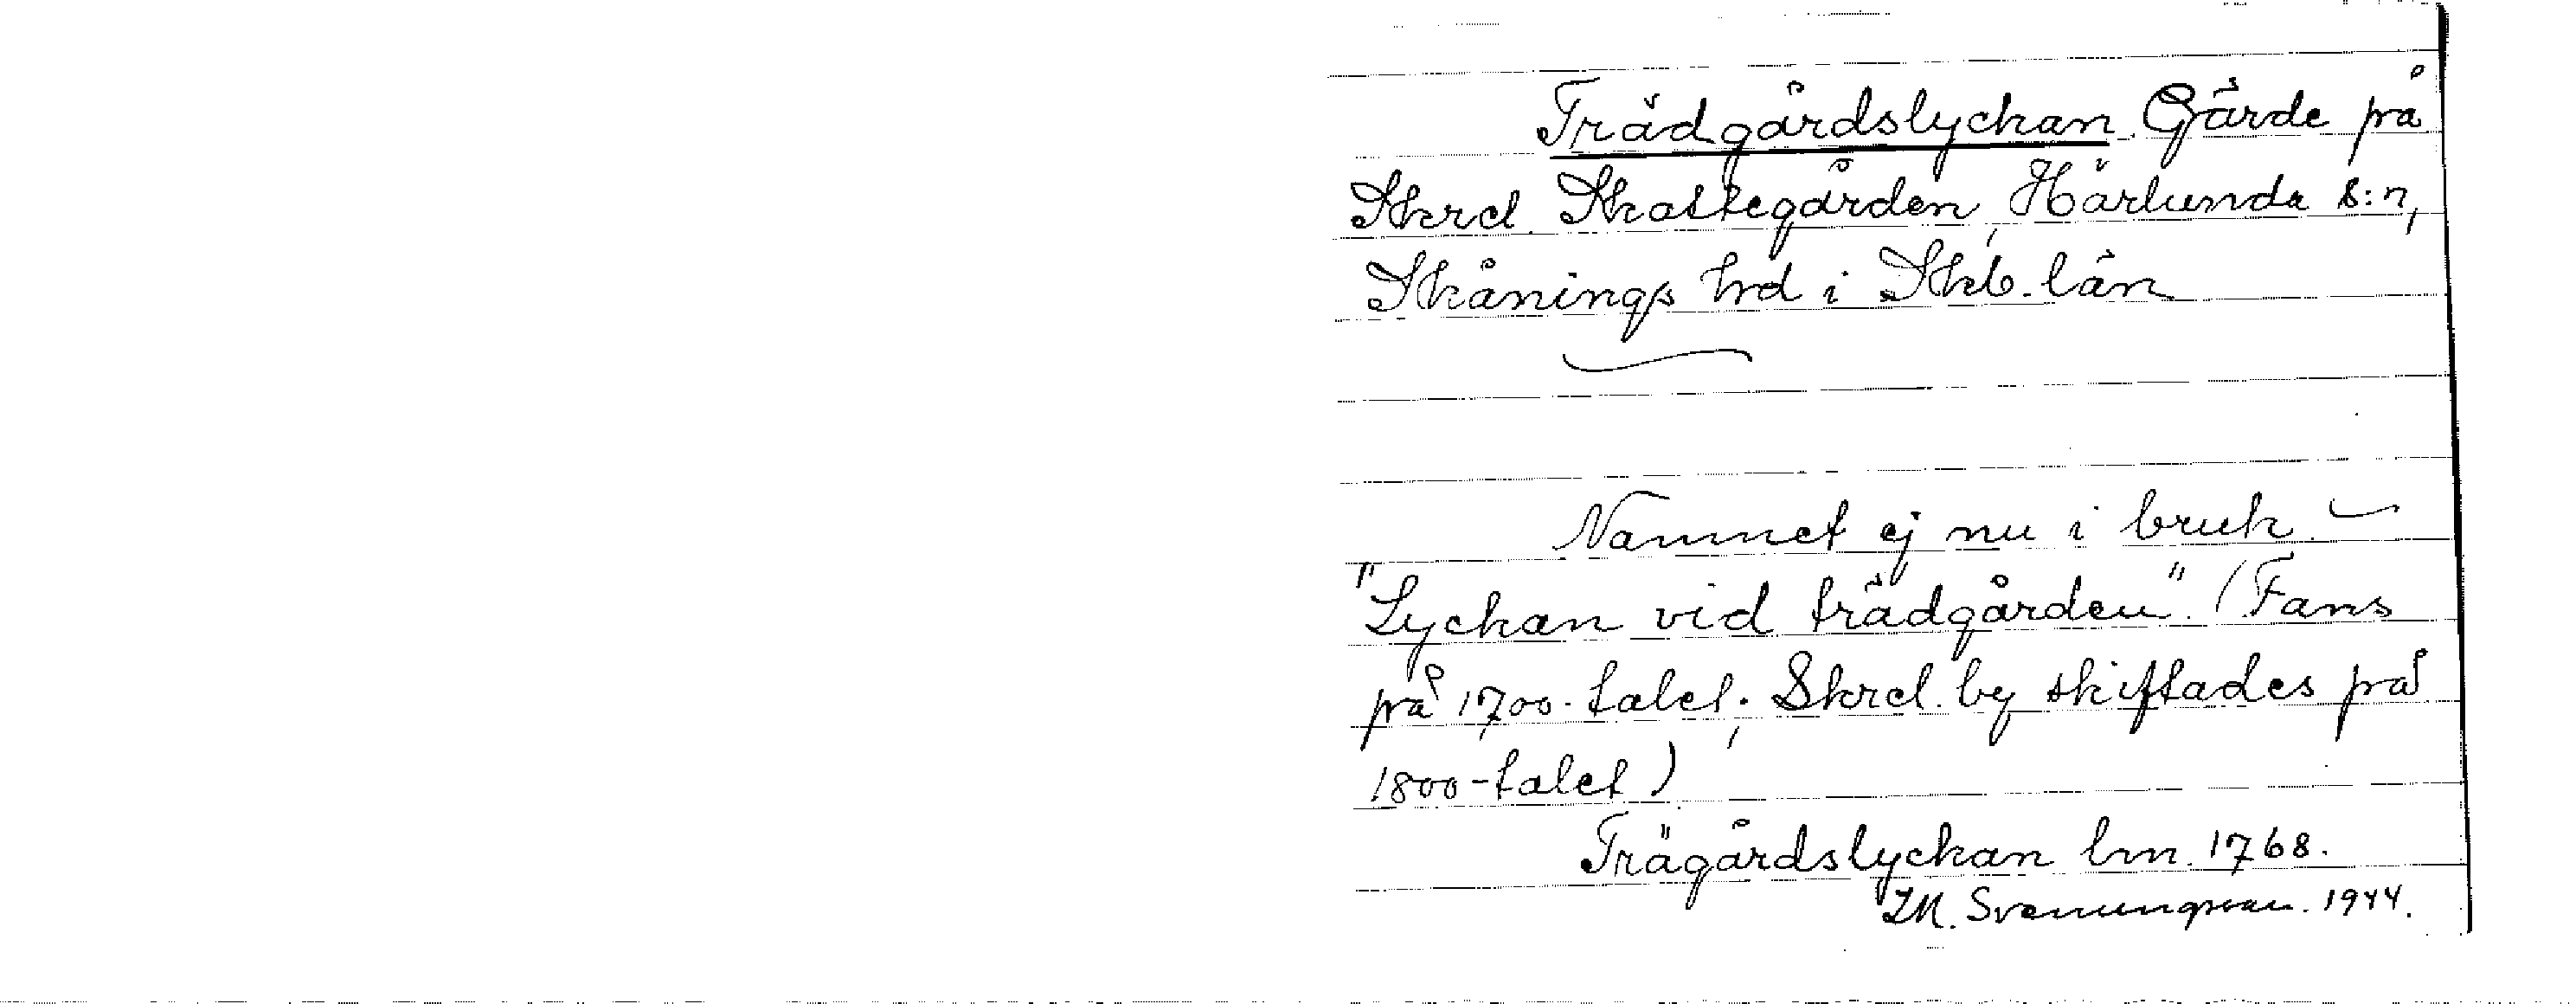 Trädgårdslyckan. Gärde på
Skrcl. Skattegården, Härlunda s:n,
Skånings hrd i Skb. län
Namnet ej nu i bruk. –
"Lyckan vid trädgården". (Fans
på 1700-talet. Skrcl. by skiftades på
1800-talet)
Trägårdslyckan lm. 1768.
IM. Svenungsson. 1944.